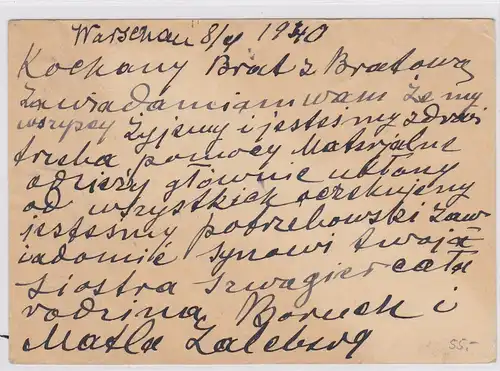 Warschau 8/V 1940
Kochany Brat z Bratową
Zawiadamiam wam że my
wszyscy żyjemy i jesteśmy zdrowi
trzeba pomocy Materjalne
odzieży głównie ubłany
od wszystkich oczekujemy
jesteśmy potrzebowski Zaw
iadomić synowi twoja
siostra szwagier cała
rodzina Boruch i
Matla Zalcberg
55.-